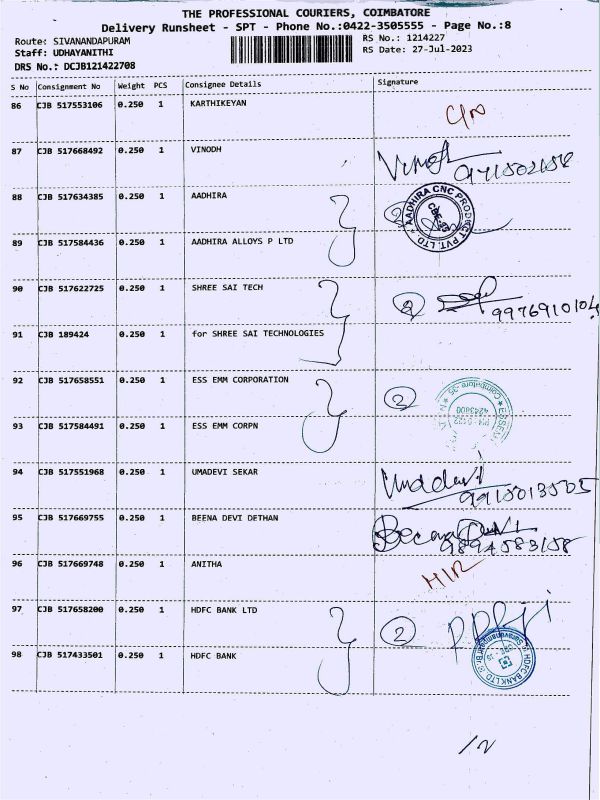 THE PROFESSIONAL COURIERS, COIMBATORE
Delivery Runsheet - SPT - Phone No.:0422-3505555 - Page No.:8
Route: SIVANANDAPURAM
RS No.: 1214227
Staff: UDHAYANITHI
RS Date: 27-Jul-2023
DRS No.: DCJB121422708
S No Consignment No Weight PCS Consignee Details Signature
86 CJB 517553106 0.250 1 KARTHIKEYAN
87 CJB 517668492 0.250 1 VINODH Vinoth
88 CJB 517634385 0.250 1 AADHIRA 2 AADHIRA CNC PRODUCT PVT. LTD.
89 CJB 517584436 0.250 1 AADHIRA ALLOYS P LTD
90 CJB 517622725 0.250 1 SHREE SAI TECH 2 9976910104
91 CJB 189424 0.250 1 for SHREE SAI TECHNOLOGIES
92 CJB 517658551 0.250 1 ESS EMM CORPORATION 2 Coimbatore-35
93 CJB 517584491 0.250 1 ESS EMM CORPN
94 CJB 517551968 0.250 1 UMADEVI SEKAR Umadevi
95 CJB 517669755 0.250 1 BEENA DEVI DETHAN Beena Devi
9894583158
96 CJB 517669748 0.250 1 ANITHA
97 CJB 517658200 0.250 1 HDFC BANK LTD 2
98 CJB 517433501 0.250 1 HDFC BANK HDFC BANK LTD
12